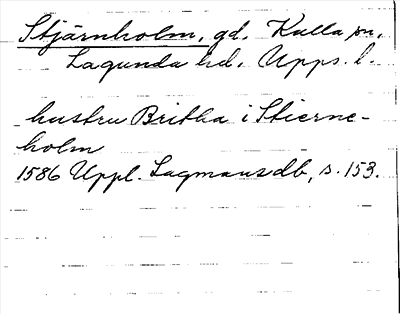 Stjärnholm, gd, Kulla sn,
Lagunda hd, Upps. l.
hustru Britha i Stierne-
holm
1586 Uppl. Lagmansdb, s. 153.